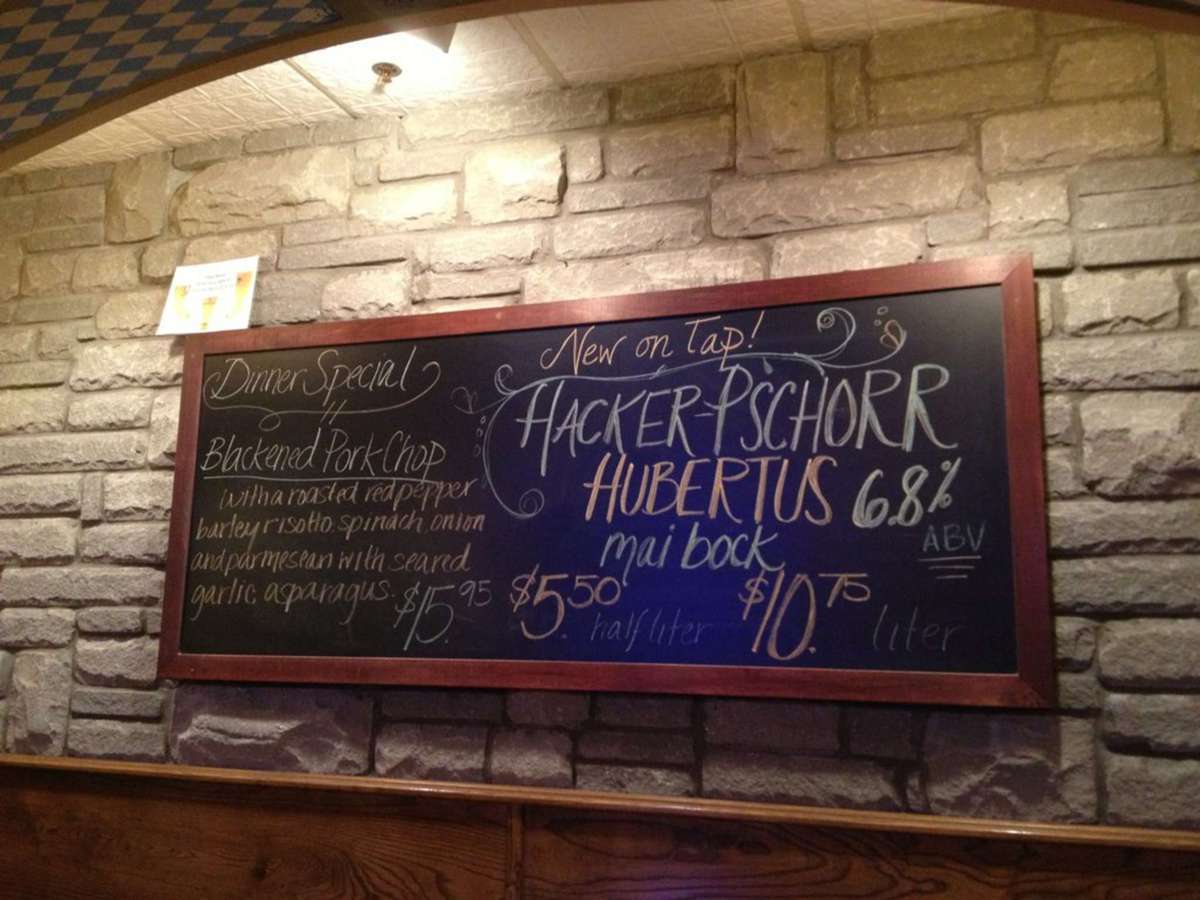 Dinner Special
Blackened Pork Chop
with a roasted red pepper
barley risotto, spinach, onion
and parmesean with seared
garlic asparagus. $15.95
New on Tap!
HACKER-PSCHORR
HUBERTUS 6.8%
ABV
mai bock
$5.50 half liter $10.75 liter